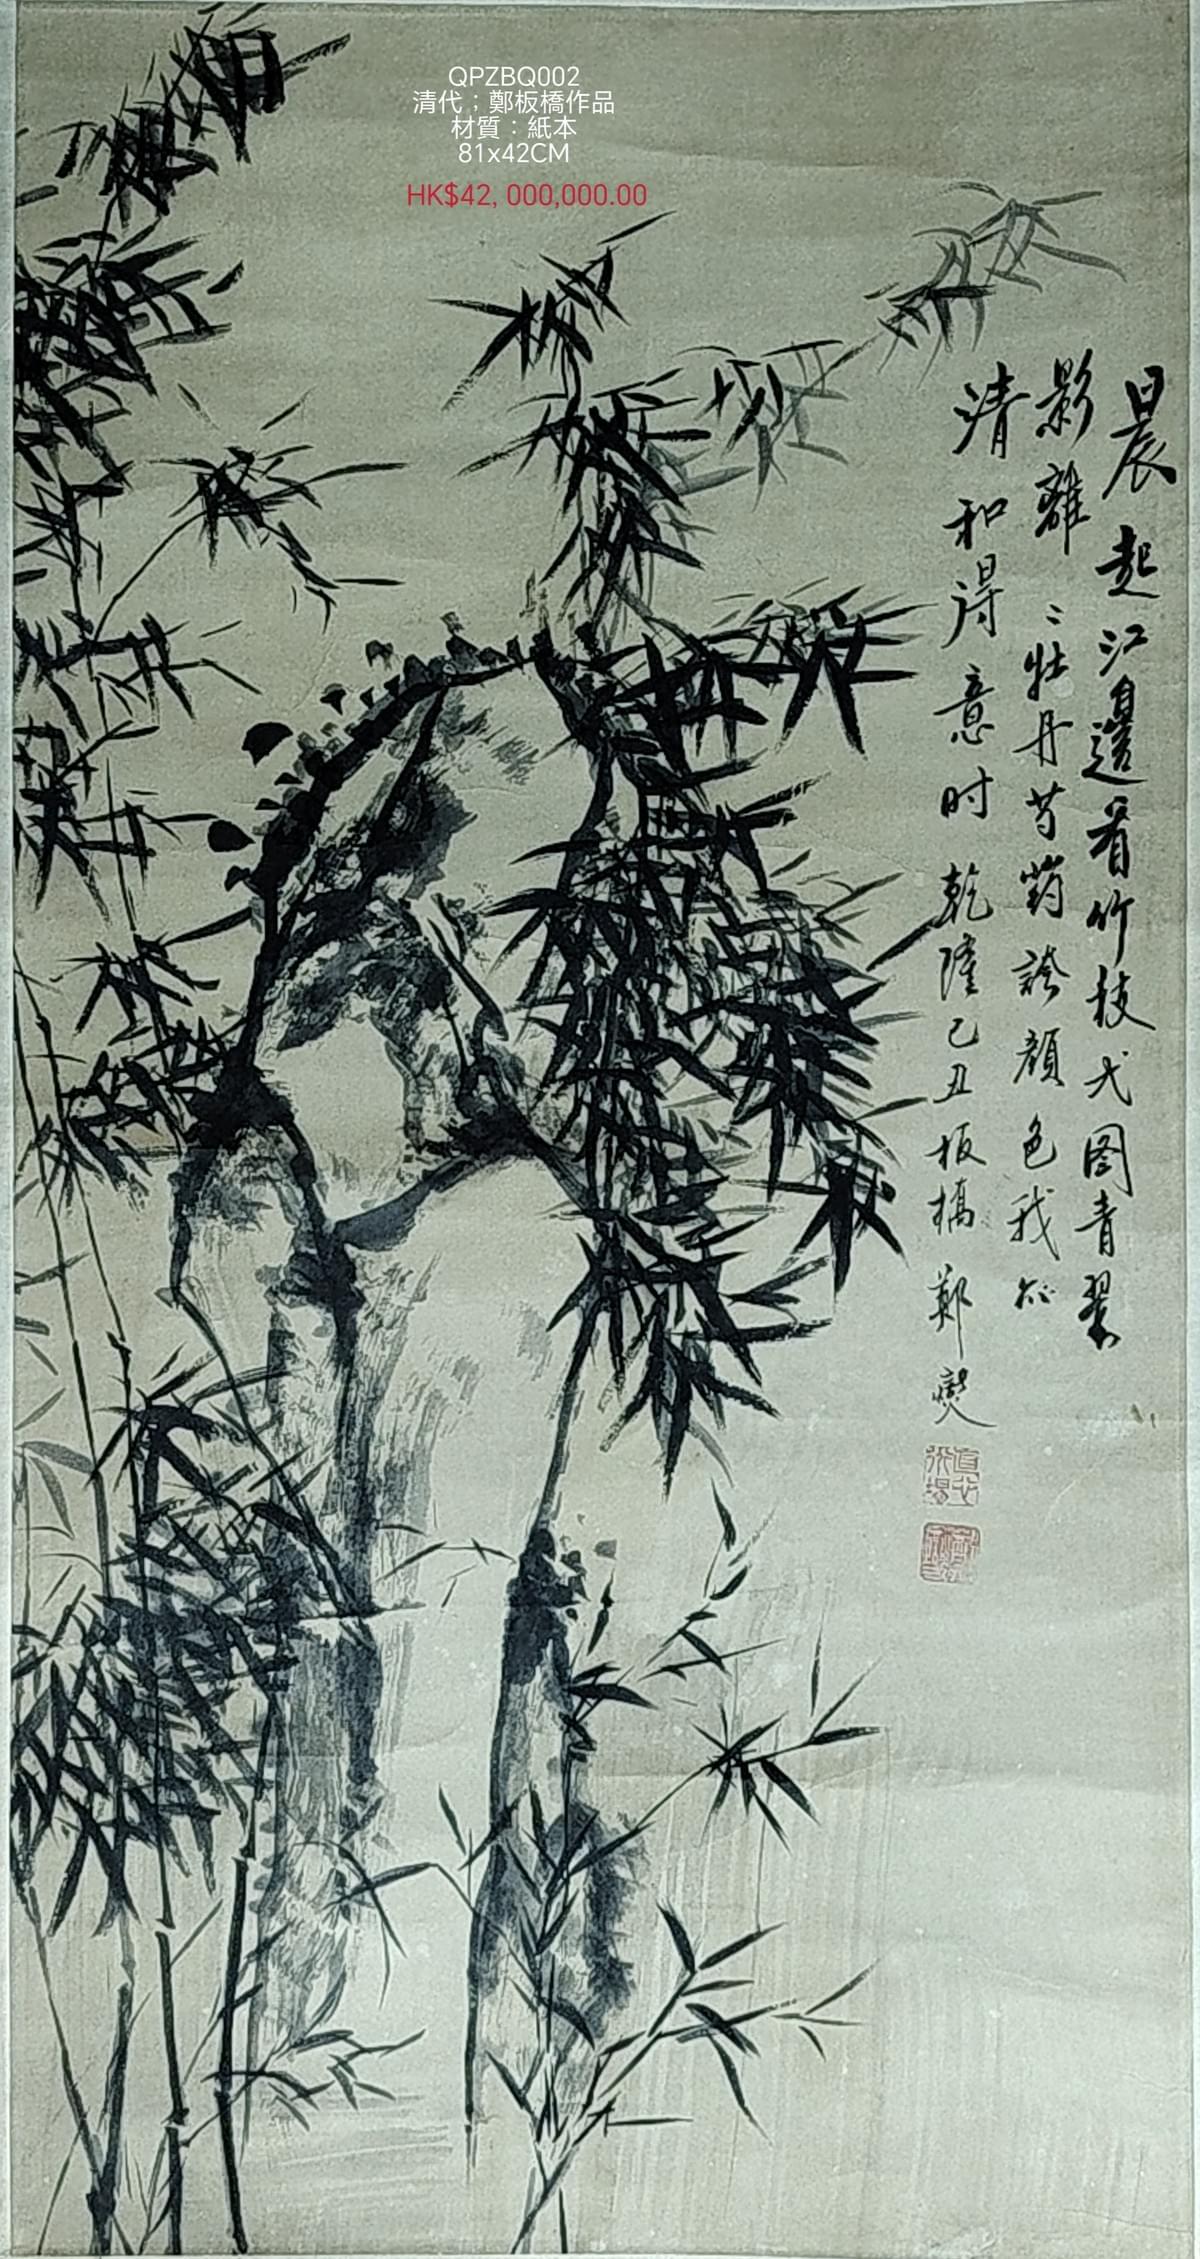 QPZBQ002
清代；鄭板橋作品
材質：紙本
81x42CM
HK$42, 000,000.00
晨起江邊看竹枝尤图青翠
影離〻牡丹芍药誇顔色我
清和得意时乾隆己丑板橋鄭燮